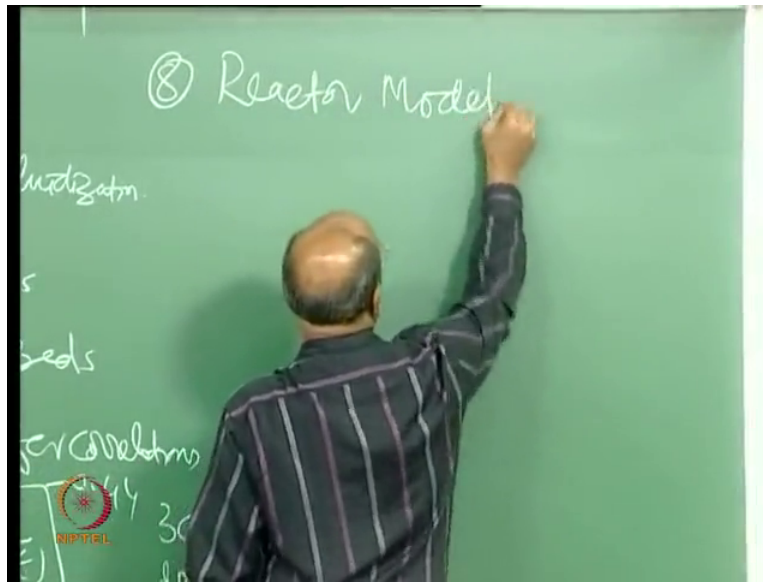 ⑧ Reactor Model
luidizatn.
s
beds
fer correlations
44
30
NPTEL